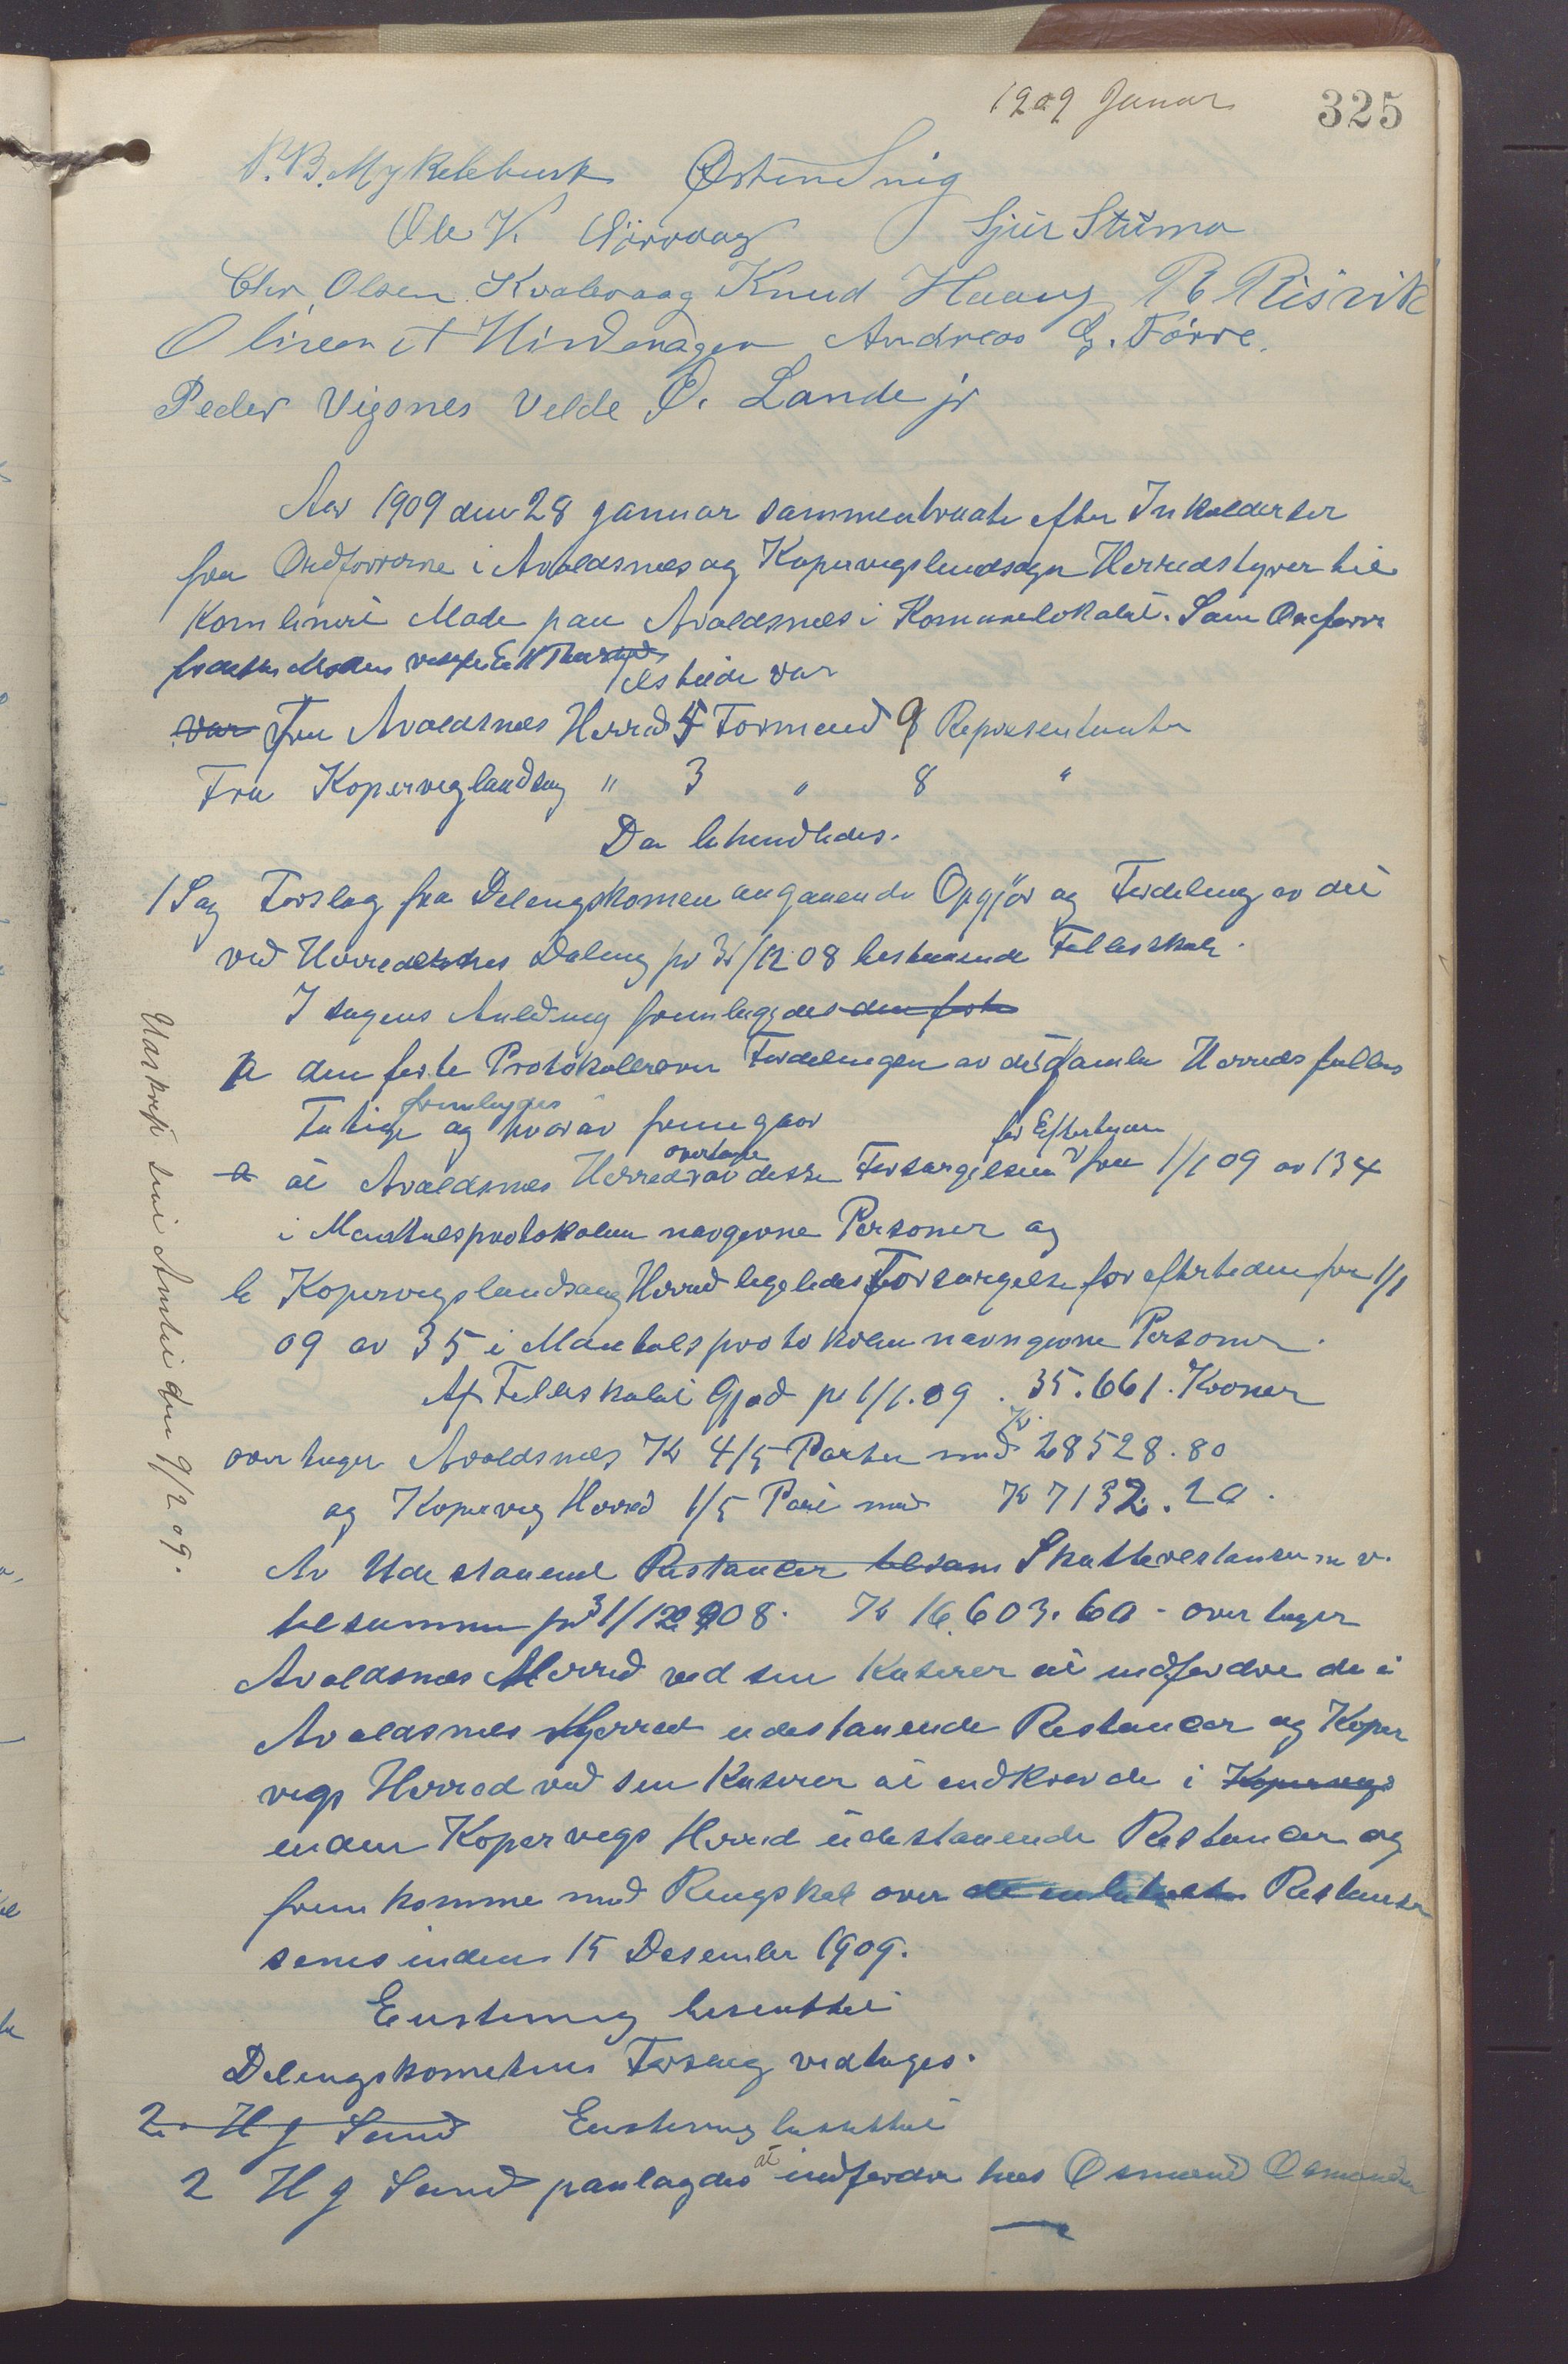 1909 Januar 325
P. B. Myklebust Østen Snig
Ole K. Sjur Stumo
Chr. Olsen Kvalevaag Knud Haaug R Risvik
Olinen t Hindenagen Andreas G. Førre.
Peder Vigsnes Velde O. Lande jr
Aar 1909 den 28 januar sammentraate efter Inkaldelser
fra Ordførerne i Avaldsnes og Kopervigslandsogn Herredstyrer til
Kombineret Møde paa Avaldsnes i Komunelokalet. Som Ordfører
for dette Mødes
Tilstede var
var Fra Avaldsnes Herred 4 Formænd 9 Representanter
Fra Koperviglandsog " 3 " 8 "
Da behandledes.
1 Sag Forslag fra Delingskomen angaaende Opgjør og Fordeling av det
ved Herredernes Deling pr 31/12 08 bestaaende Fellesskab.
I sagens Anledning fremlagdes den første
a den første Protokol over Fordelingen av det Gamle Herreds felles
fremlegges
Fatige og hvorav fremgaar
overtage for Eftertiden
a at Avaldsnes Herred av disse Forsørgelsen fra 1/1 09 av 134
i Mantalsprotokolen navgivne Personer og
b Kopervigslandsog Herred ligeledes Forsørgelse for eftertiden fra 1/1
09 av 35 i Mantalsprotokolen navngivne Personer.
Af Felleskabet Gjæd pr 1/1.09. 35.661. Kroner
overtager Avaldsnes Kr 4/5 Parter med Kr. 28528.80
og Kopervig Herred 1/5 Part med Kr 7132.20.
Av Udestaaende Restancer tilsam Skatterestanser m v.
tilsammen pr 31/12 1908. Kr 16.603.60 - overtager
Avaldsnes Herred ved sin Kaserer at indfordre de i
Avaldsnes Herred udestaaende Restancer og Koper
vigs Herred ved sin Kaserer at indkræve de i Kopervigs
inden Kopervigs Herred udestaaende Restancer og
fremkomme med Rengskab over Restanser
senes inden 15 Desember 1909.
Enstemig besluttet
Delingskomiteens Forslag vedtages.
2. H J Sund Enstemig besluttet
2 H J Sund paalagdes at indfordre hos Osmund Osmundsen
Udskrift sent Amtet den 9/2 09.